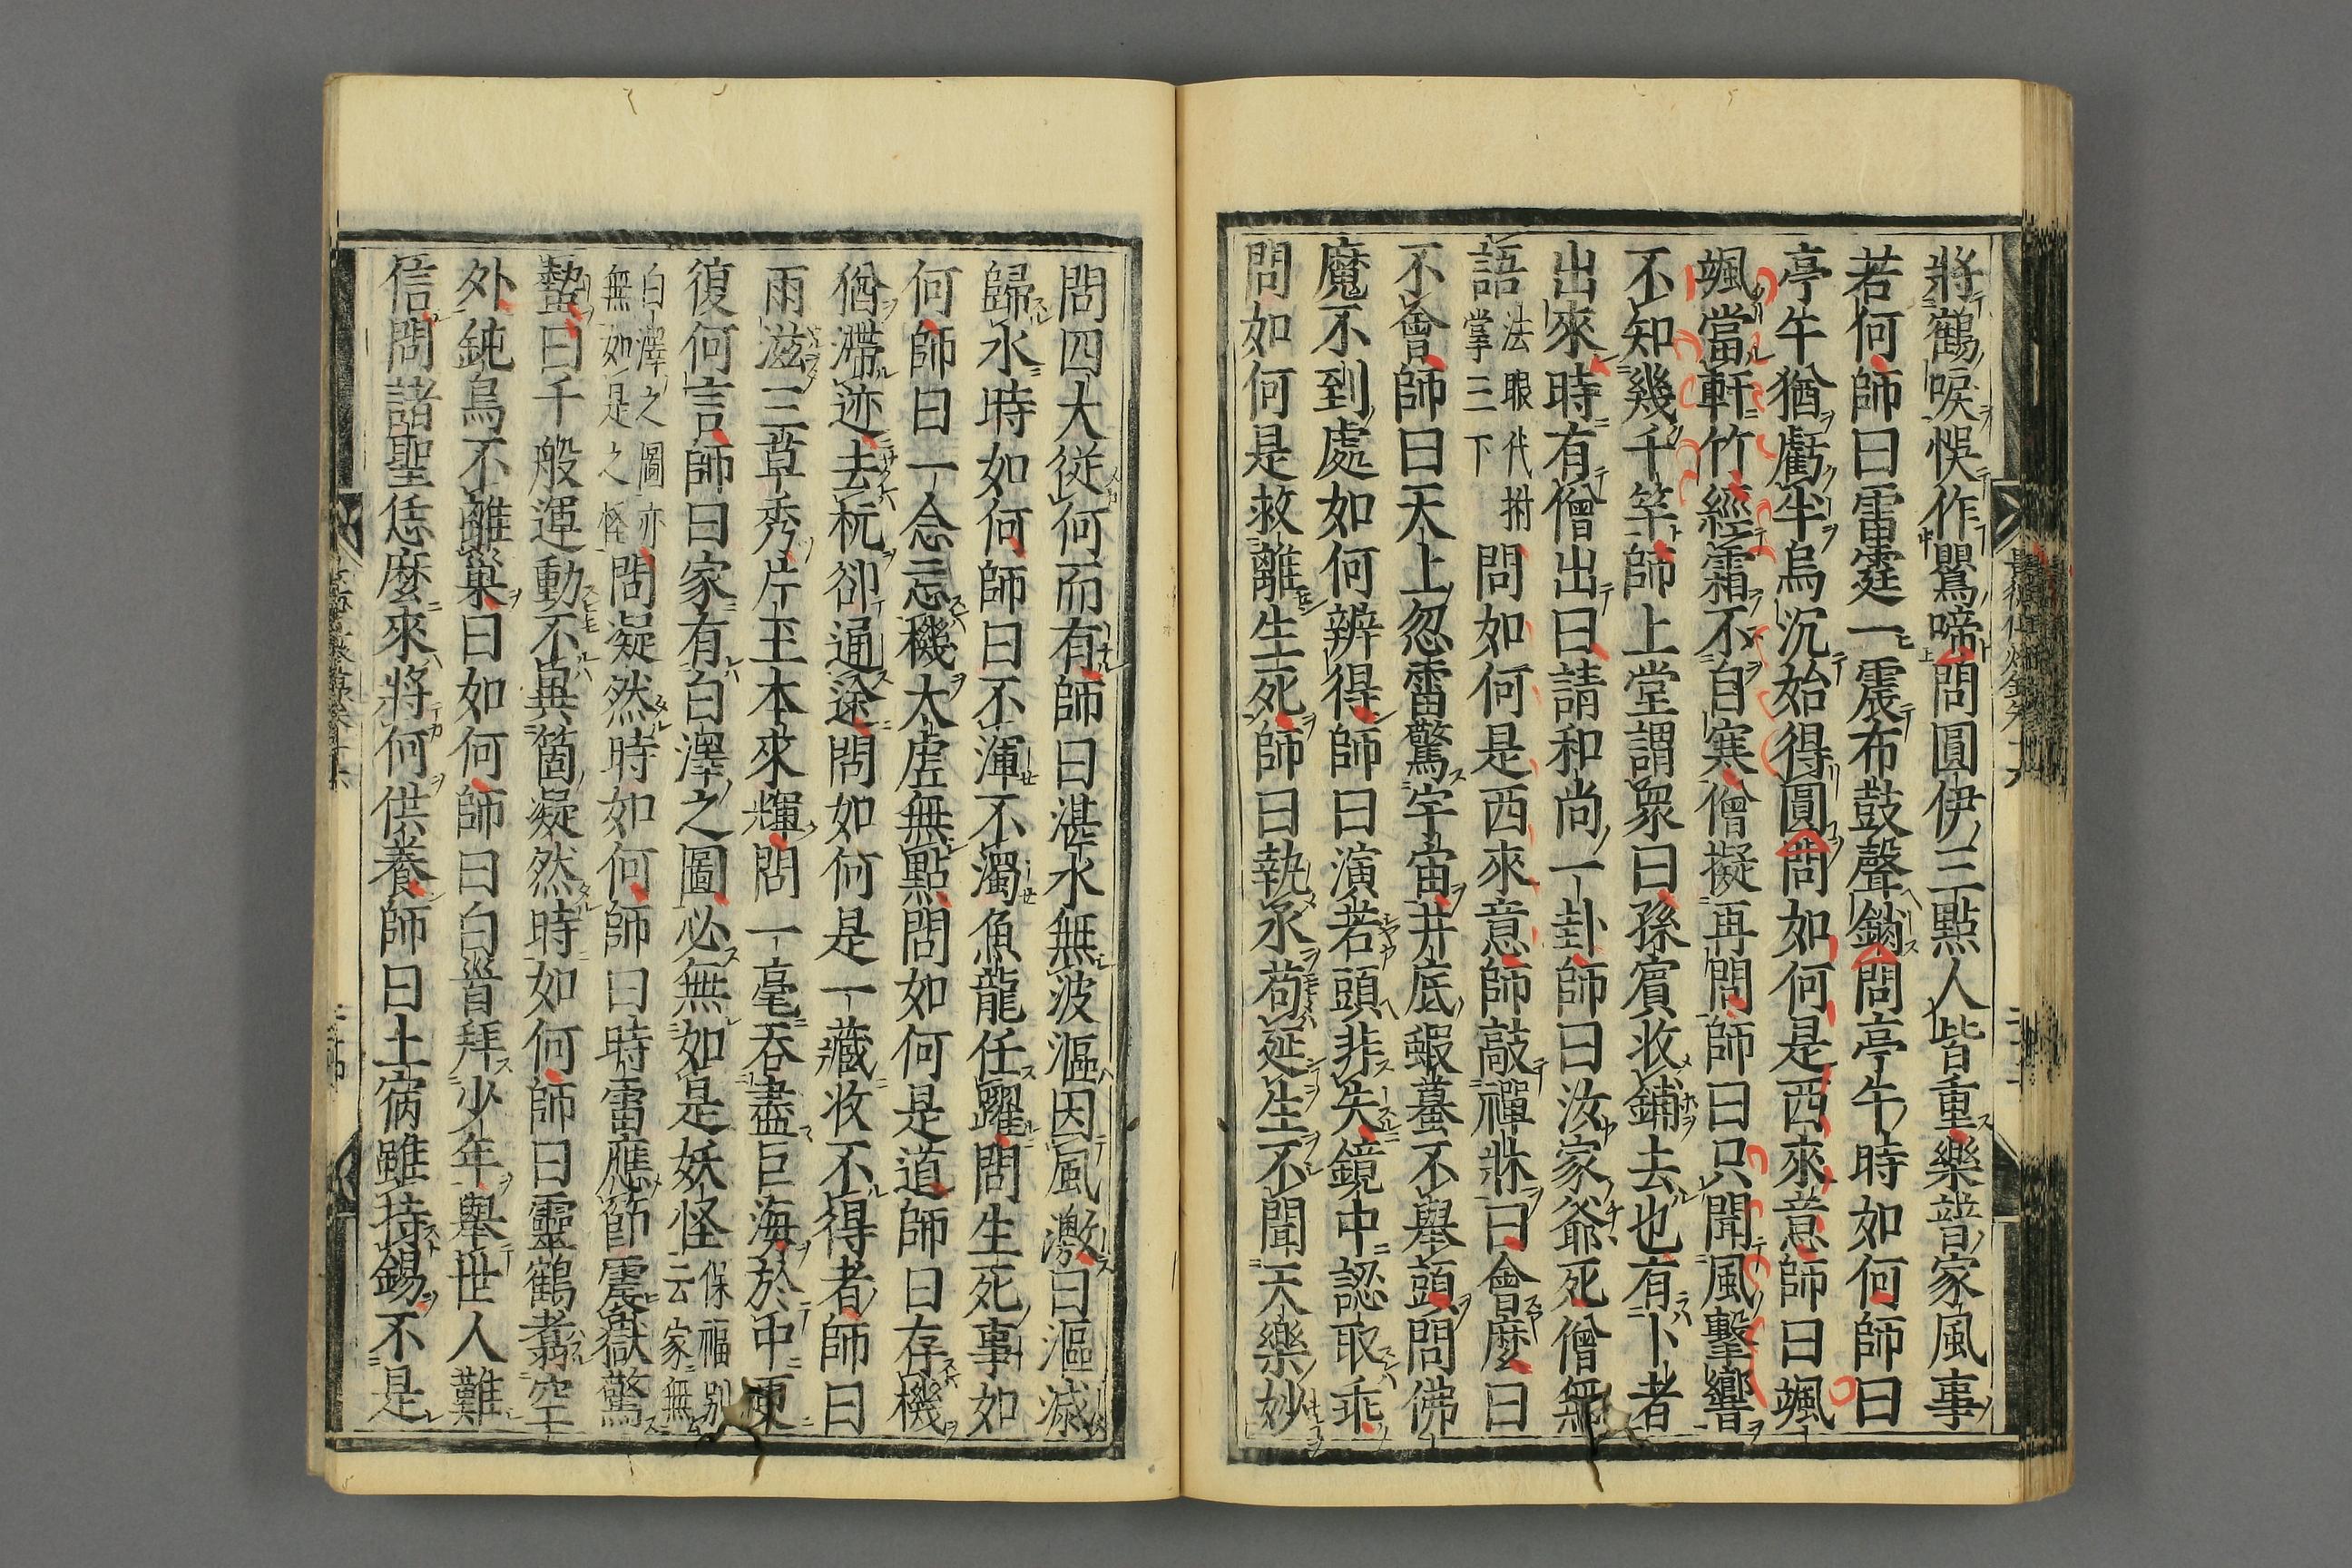 將鶴唳悞作鸎啼問圓伊三點人皆重樂普家風事
若何師曰雷霆一震布鼓聲銷問亭午時如何師曰
亭午猶虧半烏沉始得圓問如何是西來意師曰颯
颯當軒竹經霜不自寒僧擬再問師曰只聞風擊響
不知幾千竿師上堂謂眾曰孫賓收鋪去也有卜者
出來時有僧出曰請和尚一卦師曰汝家爺死僧無
語法眼代拊掌三下問如何是西來意師敲禪牀曰會麼曰
不會師曰天上忽雷驚宇宙井底蝦蟇不舉頭問佛
魔不到處如何辨得師曰演若頭非失鏡中認取乖
問如何是救離生死師曰執水苟延生不聞天樂妙
問四大從何而有師曰湛水無波漚因風激曰漚滅
歸水時如何師曰不渾不濁魚龍任躍問生死事如
何師曰一念忘機大虛無點問如何是道師曰存機
猶滯迹去杌卻通途問如何是一藏收不得者師曰
雨滋三草秀片玉本來輝問一毫吞盡巨海於中更
復何言師曰家有白澤之圖必無如是妖怪保福別云家無
白澤之圖亦無如是之怪問凝然時如何師曰時雷應節震嶽驚
蟄曰千般運動不異箇凝然時如何師曰靈鶴翥空
外鈍鳥不離巢曰如何師曰白首拜少年舉世人難
信問諸聖恁麼來將何供養師曰土宿雖持錫不是